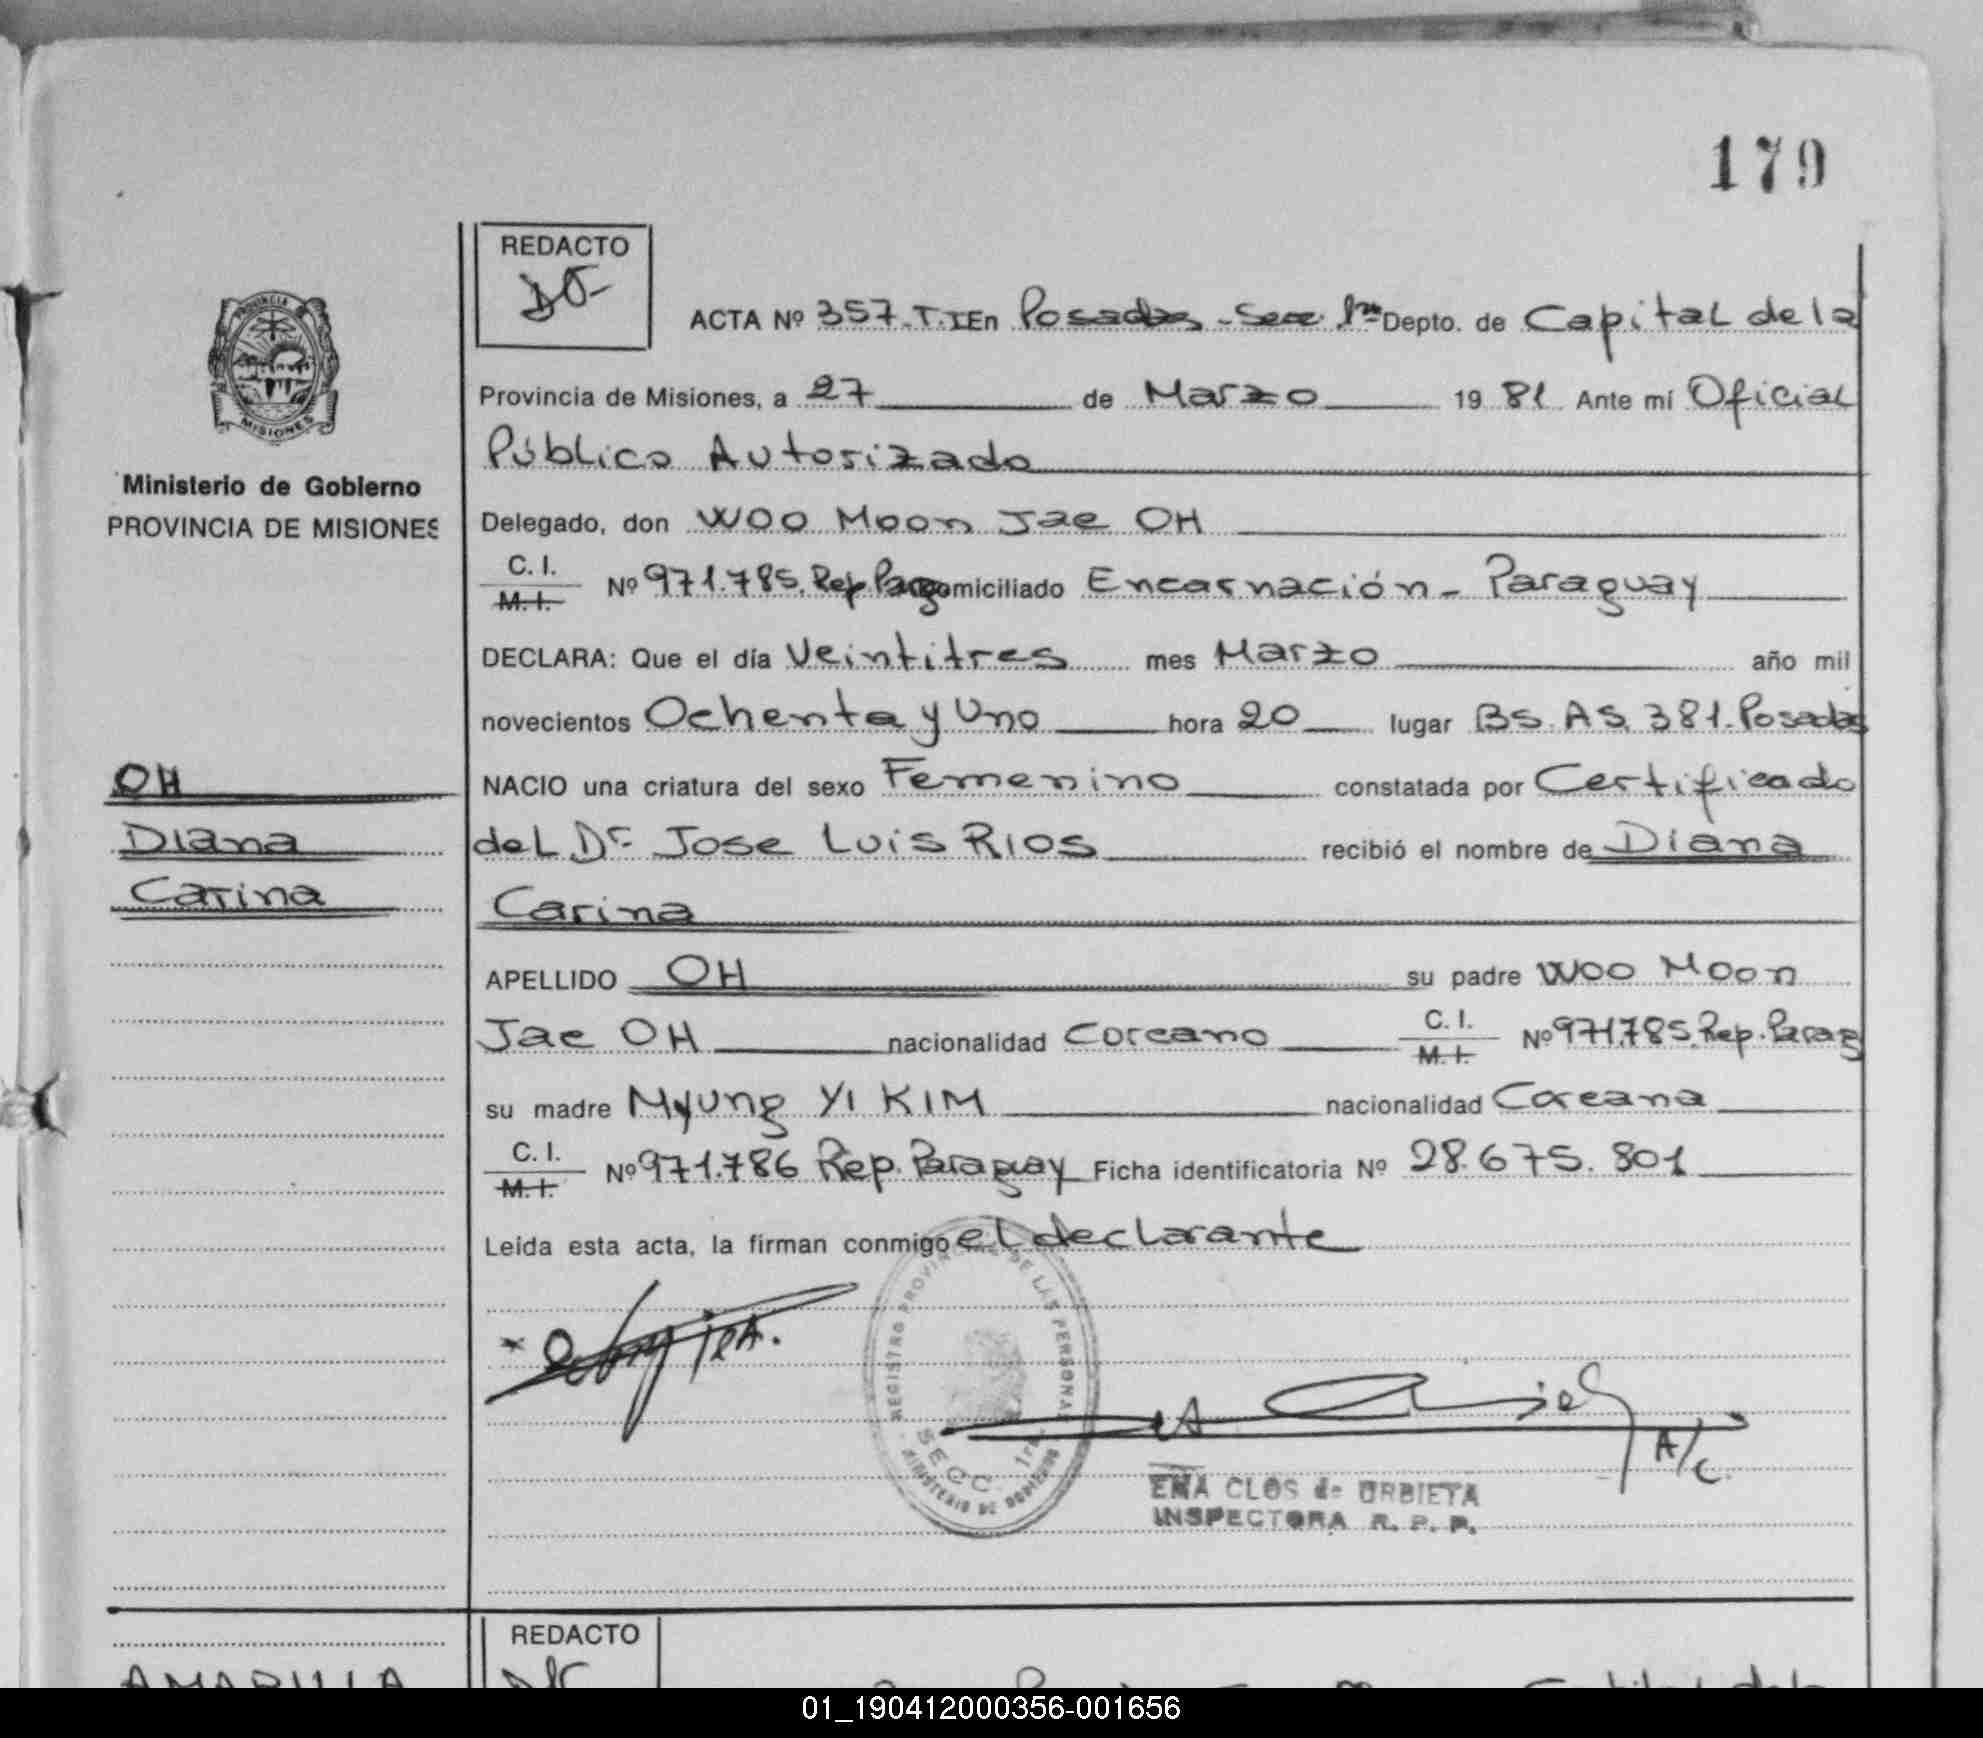 179
REDACTO
ACTA Nº 357.T.I En Posadas - Secc. 1ra Depto. de Capital de la
PROVINCIA
MISIONES
Provincia de Misiones, a 27 de Marzo 1981 Ante mí Oficial
Público Autorizado
Ministerio de Gobierno
PROVINCIA DE MISIONES
Delegado, don WOO Moon Jae OH
C. I.
M. I. Nº 971.785. Rep. Parag domiciliado Encarnación - Paraguay
DECLARA: Que el día Veintitres mes Marzo año mil
novecientos Ochenta y Uno hora 20 lugar BS. AS. 381. Posadas
OH
NACIO una criatura del sexo Femenino constatada por Certificado
Diana
del Dr. Jose Luis RIOS recibió el nombre de Diana
Carina
Carina
APELLIDO OH su padre WOO Moon
Jae OH nacionalidad Coreano C. I. M. I. Nº 971.785. Rep. Parag
su madre Myung YI KIM nacionalidad Coreana
C. I.
M. I. Nº 971.786 Rep. Paraguay Ficha identificatoria Nº 28.675.801
Leída esta acta, la firman conmigo el declarante
REGISTRO PROVINCIAL DE LAS PERSONAS
SECC. 1ra
MINISTERIO DE GOBIERNO
A/C
EMA CLOS de URBIETA
INSPECTORA R. P. P.
REDACTO
AMARILLA
01_190412000356-001656